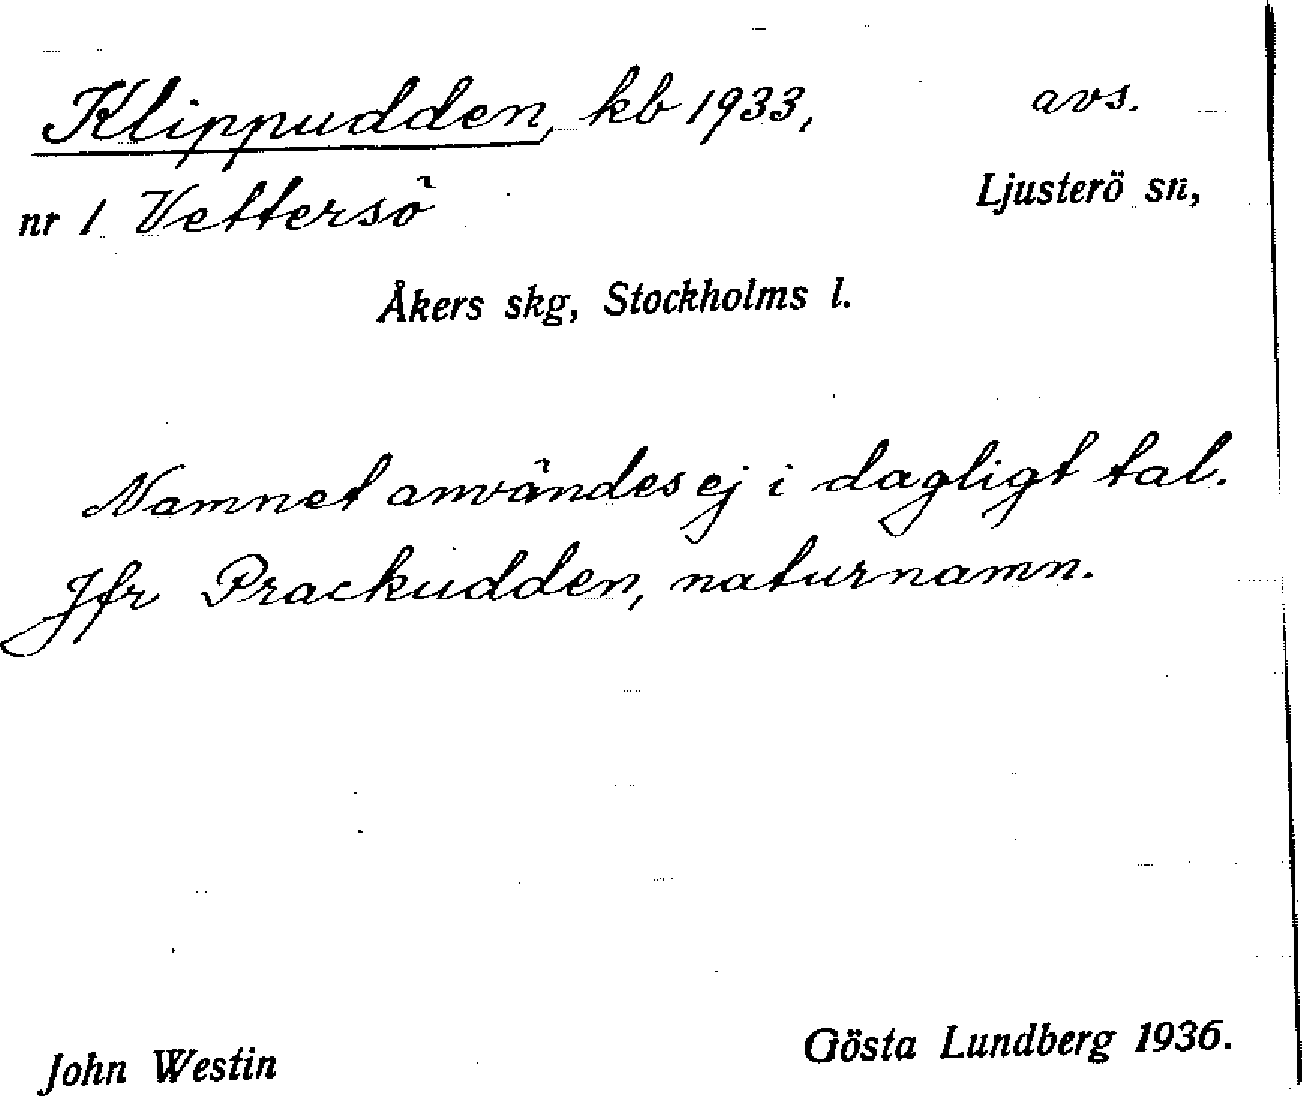 Klippudden, kb 1933, avs.
nr 1 Vettersö Ljusterö sn,
Åkers skg, Stockholms l.
Namnet användes ej i dagligt tal.
Jfr Prackudden, naturnamn.
John Westin Gösta Lundberg 1936.